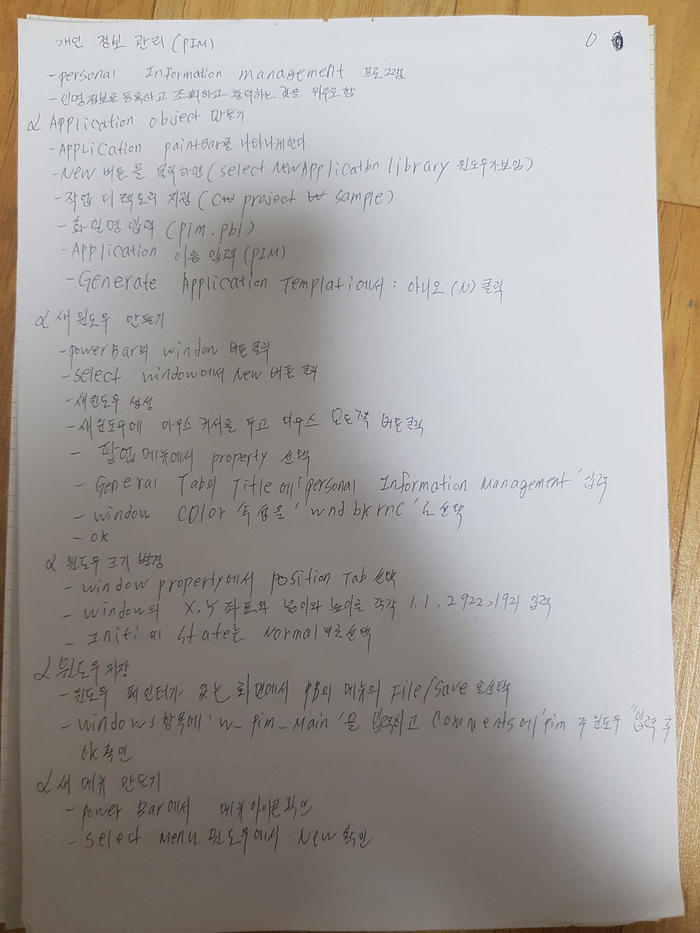 개인 정보 관리 (PIM)
0
- personal Information management 프로그램
- 인명정보를 등록하고 조회하고 출력하는 것을 위주로 함
α Application object 만들기
- Application paintBar를 나타나게한다
- New 버튼을 클릭하면 (select New Application library 윈도우가보임)
- 작업 디렉토리 지정 (c₩ project ₩ sample)
- 화일명 입력 (pim.pbl)
- Application 이름 입력 (PIM)
- Generate Application Templati에서 : 아니오 (N) 클릭
α 새 윈도우 만들기
- powerBar의 window 버튼클릭
- select window에서 New 버튼 클릭
- 새윈도우 생성
- 새윈도우에 마우스 커서를 두고 마우스 오른쪽 버튼클릭
- 팝업메뉴에서 property 선택
- General Tab의 Title에 'personal Information Management' 입력
- window color 속성을 'wnd bkrnc'로 선택
- ok
α 윈도우 크기 변경
- window property에서 position Tab 선택
- window의 X, Y 좌표와 넓이와 높이를 각각 1, 1, 2922, 1921 입력
- Initial State는 Normal로선택
α 윈도우 저장
- 윈도우 페인터가 있는 화면에서 PB의 메뉴의 File/Save 로선택
- windows항목에 'w_pim_Main'을 입력하고 Comments에 'pim 주 윈도우" 입력 후
ok확인
α 새 메뉴 만들기
- power Bar에서 메뉴아이콘 확인
- select Menu 윈도우에서 New 확인